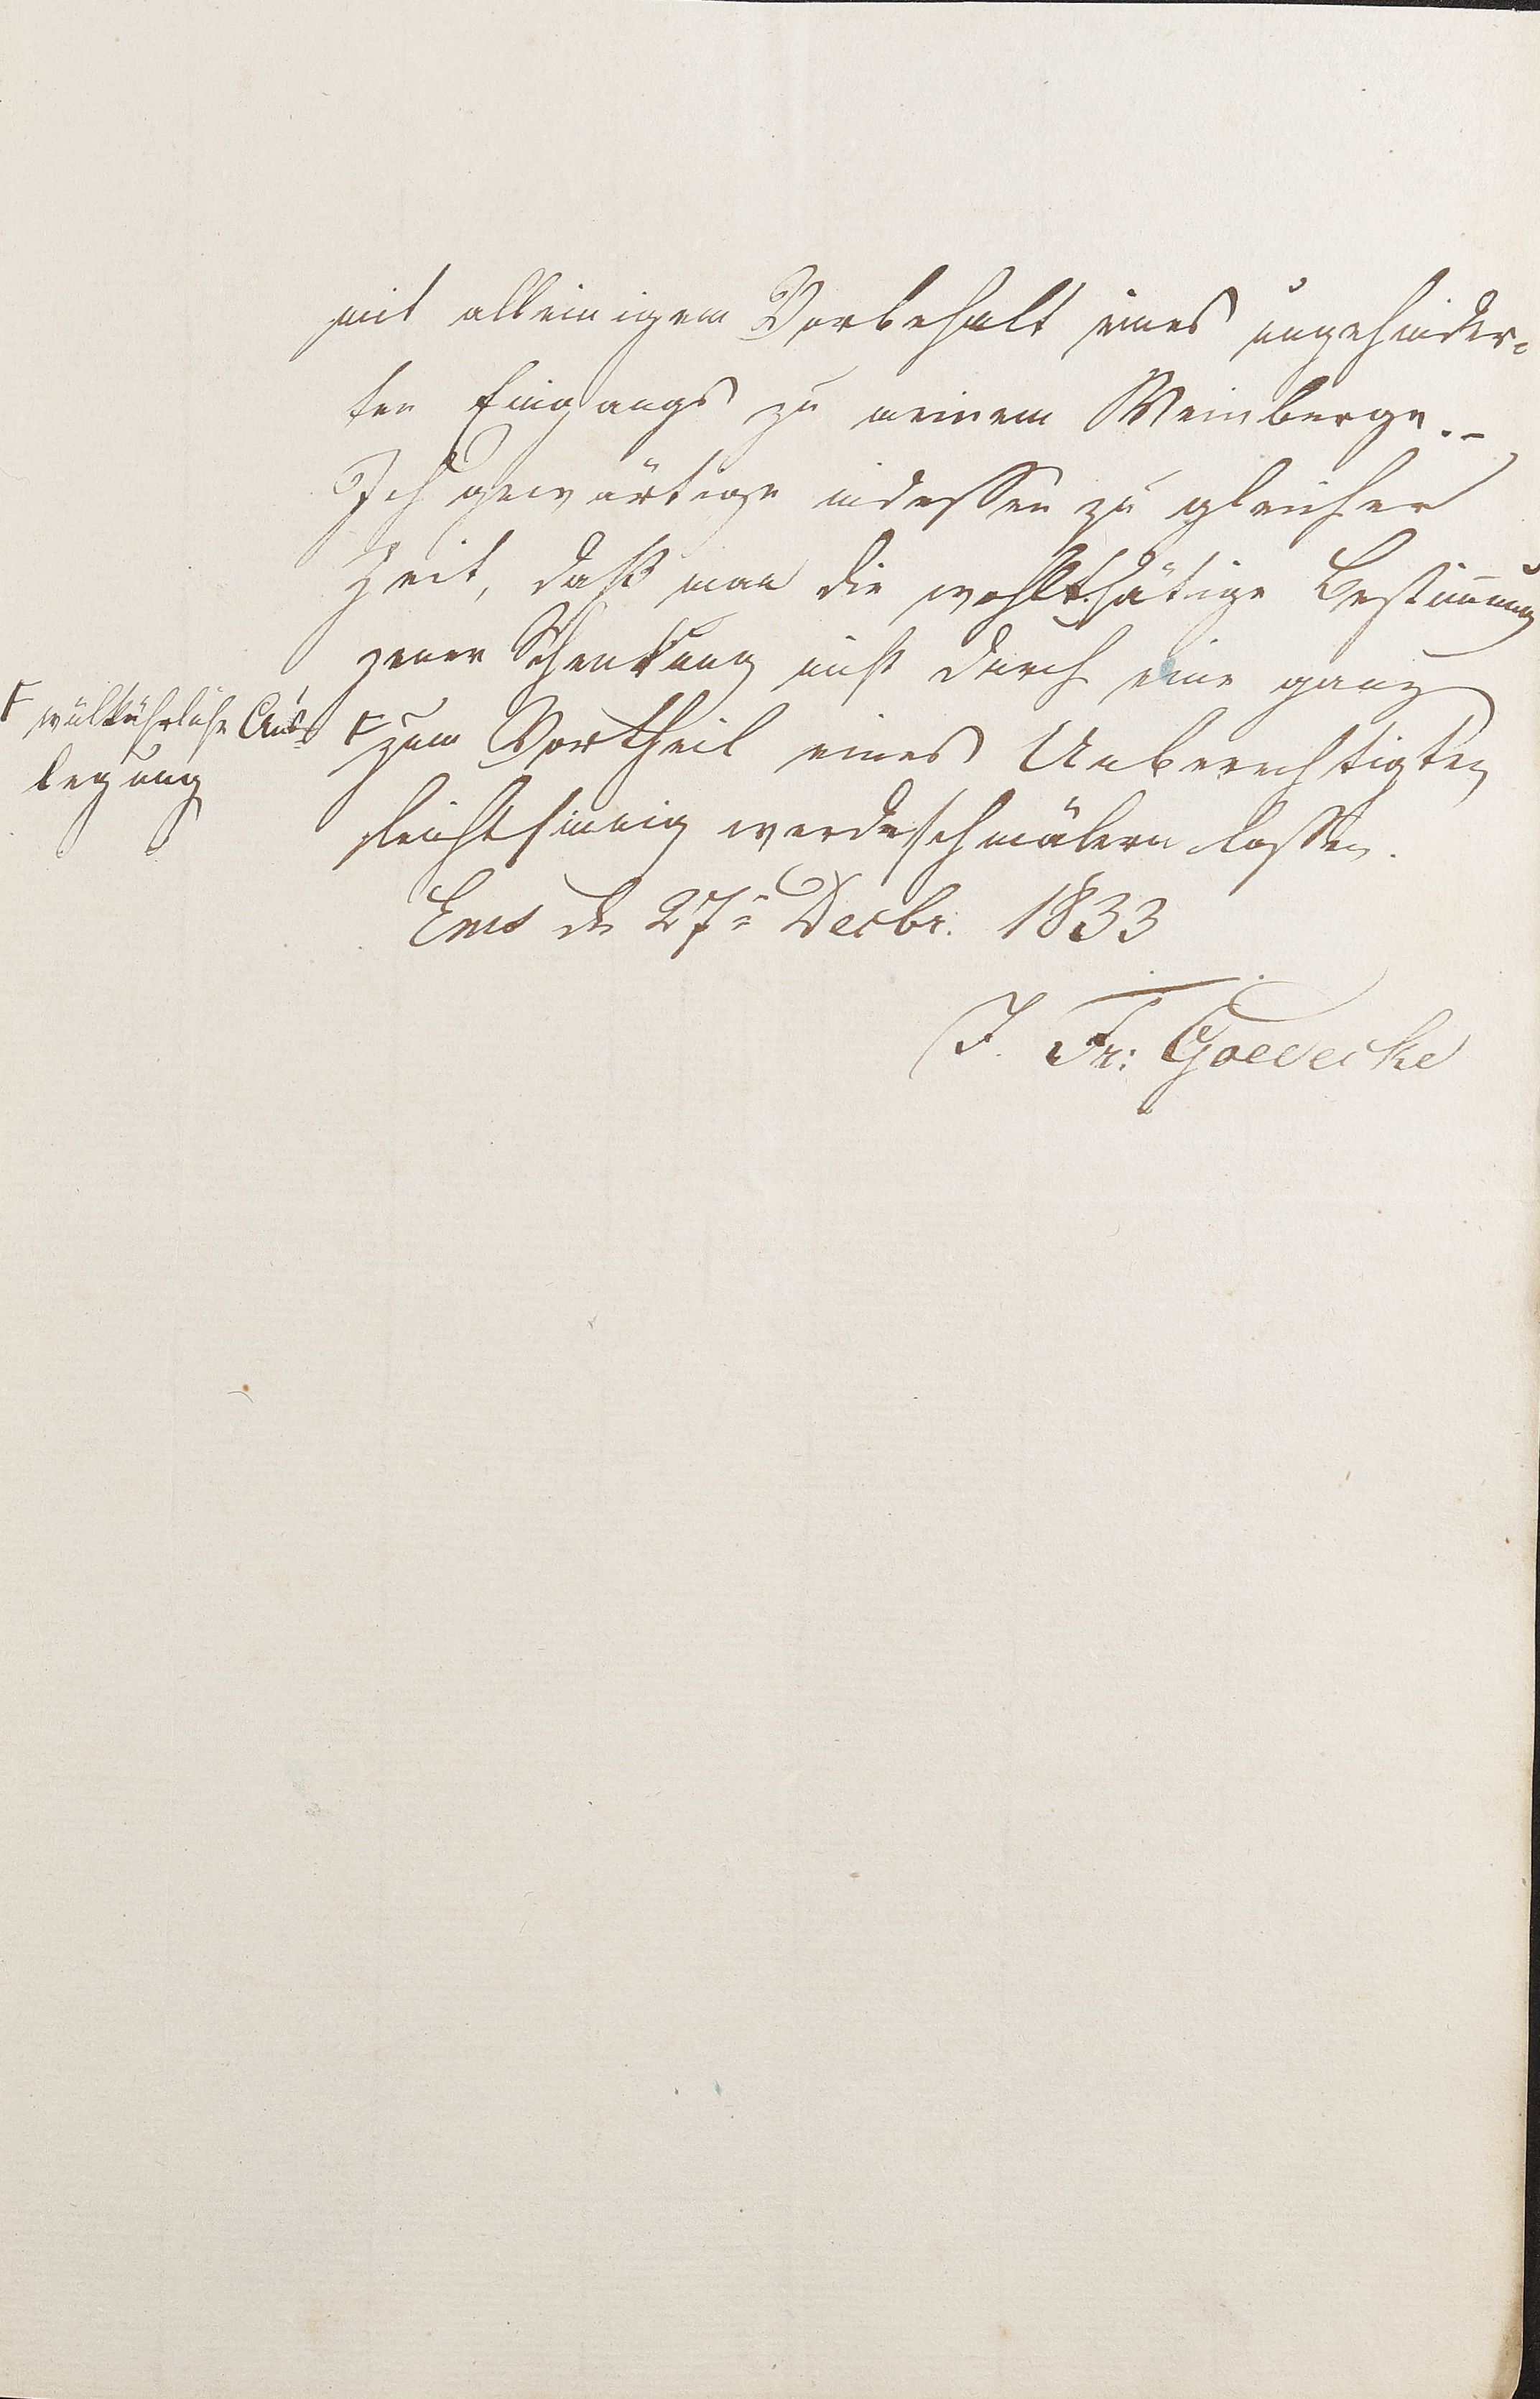 mit alleinigem Vorbehalt eines ungehinder-
ten Eingangs zu meinem Weinberge.-
Ich gewärtige indessen zu gleicher
Zeit, daß man die wohlthätige Bestim̅ung
jener Schenkung nicht durch eine ganz
F wilkührliche Aus-
legung
F zum Vortheil eines Unberechtigten
leichtsinnig werde schmälern lassen.
Ems d 27n Decbr. 1833
J. Fr: Goedecke